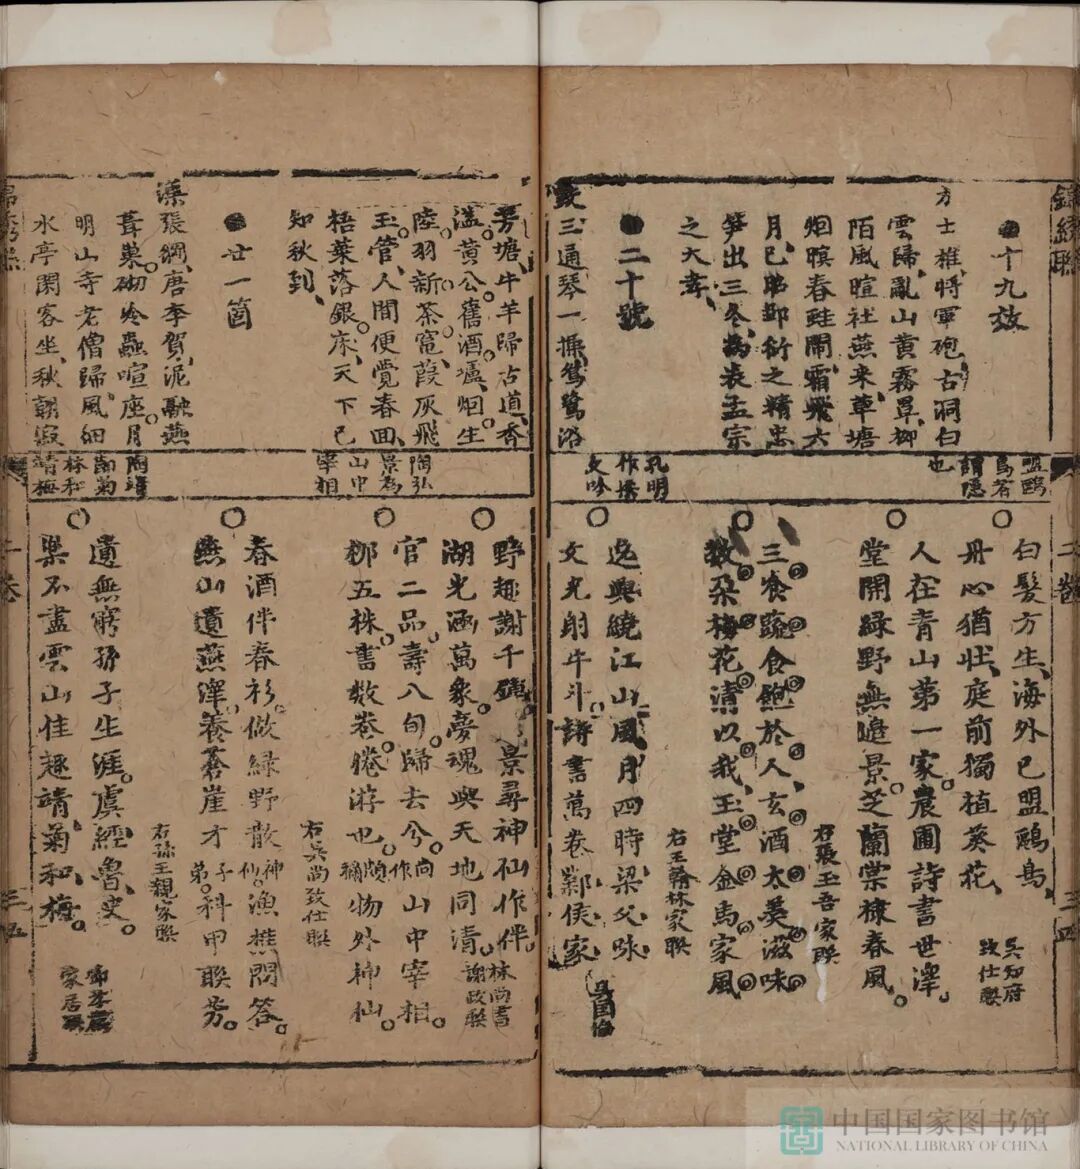 錦綉聯
二卷
三四
十九效
方士椎、將軍砲、古洞白
雲歸、亂山黃霧罩、柳
陌風暄社燕来、草塘
烟暝春蛙閙、霜飛六
月、已弔鄒衍之精忠
笋出三冬、為表孟宗
之大孝、
二十號
三通琴一操、鴛鷺浴
盟鷗
鳥者
謂隱
也
孔明
作操
文吟
白髮方生、海外已盟鷗鳥、
丹心猶壯、庭前獨植葵花、
吳知府
致仕聯
人在青山第一家、農圃詩書世澤。
堂開緑野無邉景。芝蘭棠棣春風。
右張玉吾家聯
三飡蔬食飽於人、玄酒太羹滋味
數朵梅花清以我、玉堂金馬家風
右王翰林家聯
逸興繞江山風月四時梁父吟
文光射牛斗。詩書萬卷鄴侯家
芳塘、牛羊歸古道、香
溢黄公舊酒壚、烟生
陸羽新茶竃、葭灰飛
玉管、人間便覺春回、
梧葉落銀床、天下已
知秋到、
廿一箇
漢張綱、唐李賀、泥融燕
葺巢。砌冷蟲喧座。月
明山寺老僧歸、風細
水亭閑客坐、秋韻寂
陶弘
景為
山中
宰相
陶靖
節菊
林和
靖梅
野趣謝千鍾、景尋神仙作伴
湖光涵萬象。夢魂與天地同清。
林尚書
謝政聯
官二品。壽八旬。歸去兮。尚作山中宰相。
栁五株。書數卷。倦游也。頗獮物外神仙。
右吳尚致仕聯
春酒伴春衫。傲緑野散神仙漁樵問答。
燕山遺燕澤。養蒼崖才子弟。科甲聯芳。
右孫王親家聯
遺無窮孫子生涯。虞經魯史。
樂不盡雲山佳趣靖菊和梅。
二卷
三五